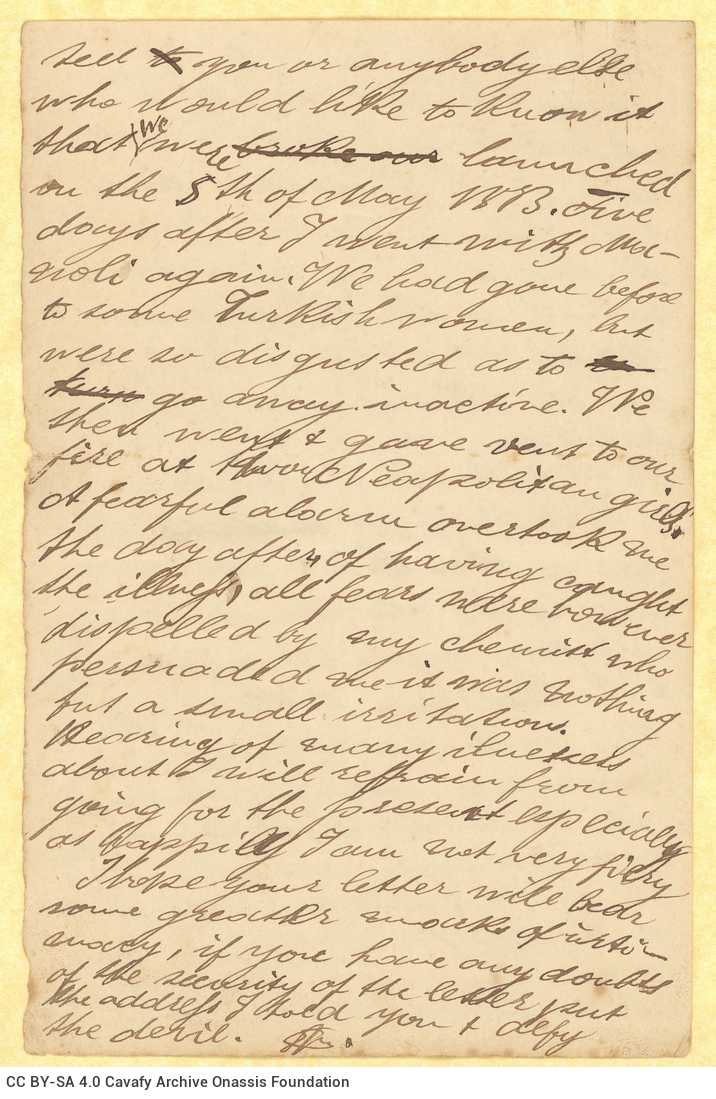 tell to you or anybody else
who would like to know it
that we were broke our launched
on the 5th of May 1883. Five
days after I went with Ma-
noli again. We had gone before
to some Turkish women, but
were so disgusted as to
turn go away inactive. We
then went & gave vent to our
fire at two Neapolitan girls.
A fearful alarm overtook me
the day after, of having caught
the illness, all fears were however
dispelled by my chemist who
persuaded me it was nothing
but a small irritation.
Hearing of many illnesses
about I will refrain from
going for the present especially
as happily I am not very fiery
I hope your letter will bear
some greater marks of inti-
macy, if you have any doubts
of the security of the letter, put
the address I told you & defy
the devil.
CC BY-SA 4.0 Cavafy Archive Onassis Foundation